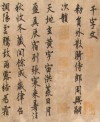 千字文
敕員外散騎侍郎周興嗣
次韻
天地玄黃宇宙洪荒日月
盈昃辰宿列張寒來暑往
秋收冬藏閏餘成歲律呂
調陽雲騰致雨露結為霜